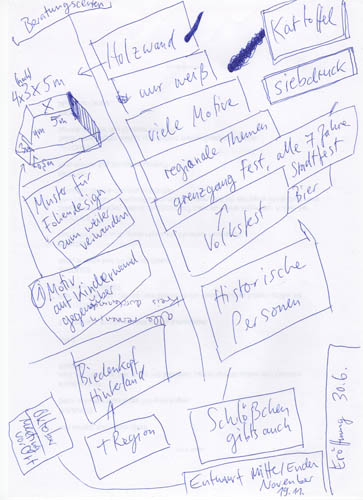 Beratungscenter
Holzwand
Kartoffel
nur weiß
siebdruck
viele Motive
4x3x5m
4m
5m
regionale Themen
grenzgang fest, alle 7 Jahre
Stadtfest
Bier
Volksfest
Muster für
Foliendesign
zum weiter
verwenden
1 Motiv
auf Kinderwand
gegenüber
Historische
Personen
Biedenkopf
Hinterland
+ Region
Schlößchen
gibts auch
Oktober
vor Ort
Entwurf Mitte/Ende
November
19.11.
Eröffnung 30.6.